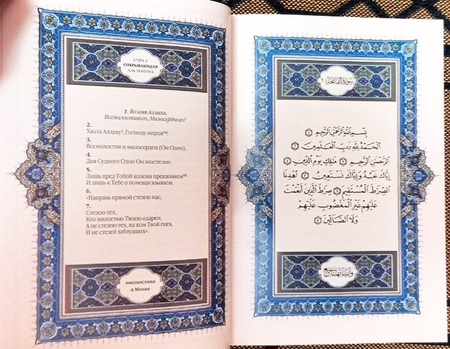 СУРА 1
ОТКРЫВАЮЩАЯ
АЛЬ-ФАТИХА
1. Во имя Аллаха,
Всемилостивого, Милосердного!
2.
Хвала Аллаху¹, Господу миров
3.
Всемилостив и милосерден (Он Один),
4.
Дня Судного Один Он властелин.
5.
Лишь пред Тобой колени преклоняем
И лишь к Тебе о помощи взываем:
6.
«Направь прямой стезею нас,
7.
Стезею тех,
Кто милостью Твоею одарен.
А не стезею тех, на ком Твой гнев,
И не стезей заблудших».
ниспослана
в Мекке
سورة الفاتحة ١
بسم الله الرحمن الرحيم ١
الحمد لله رب العلمين ٢
الرحمن الرحيم ٣ ملك يوم الدين ٤
إياك نعبد وإياك نستعين ٥ اهدنا
الصرط المستقيم ٦ صرط الذين أنعمت
عليهم غير المغضوب عليهم
ولا الضالين ٧